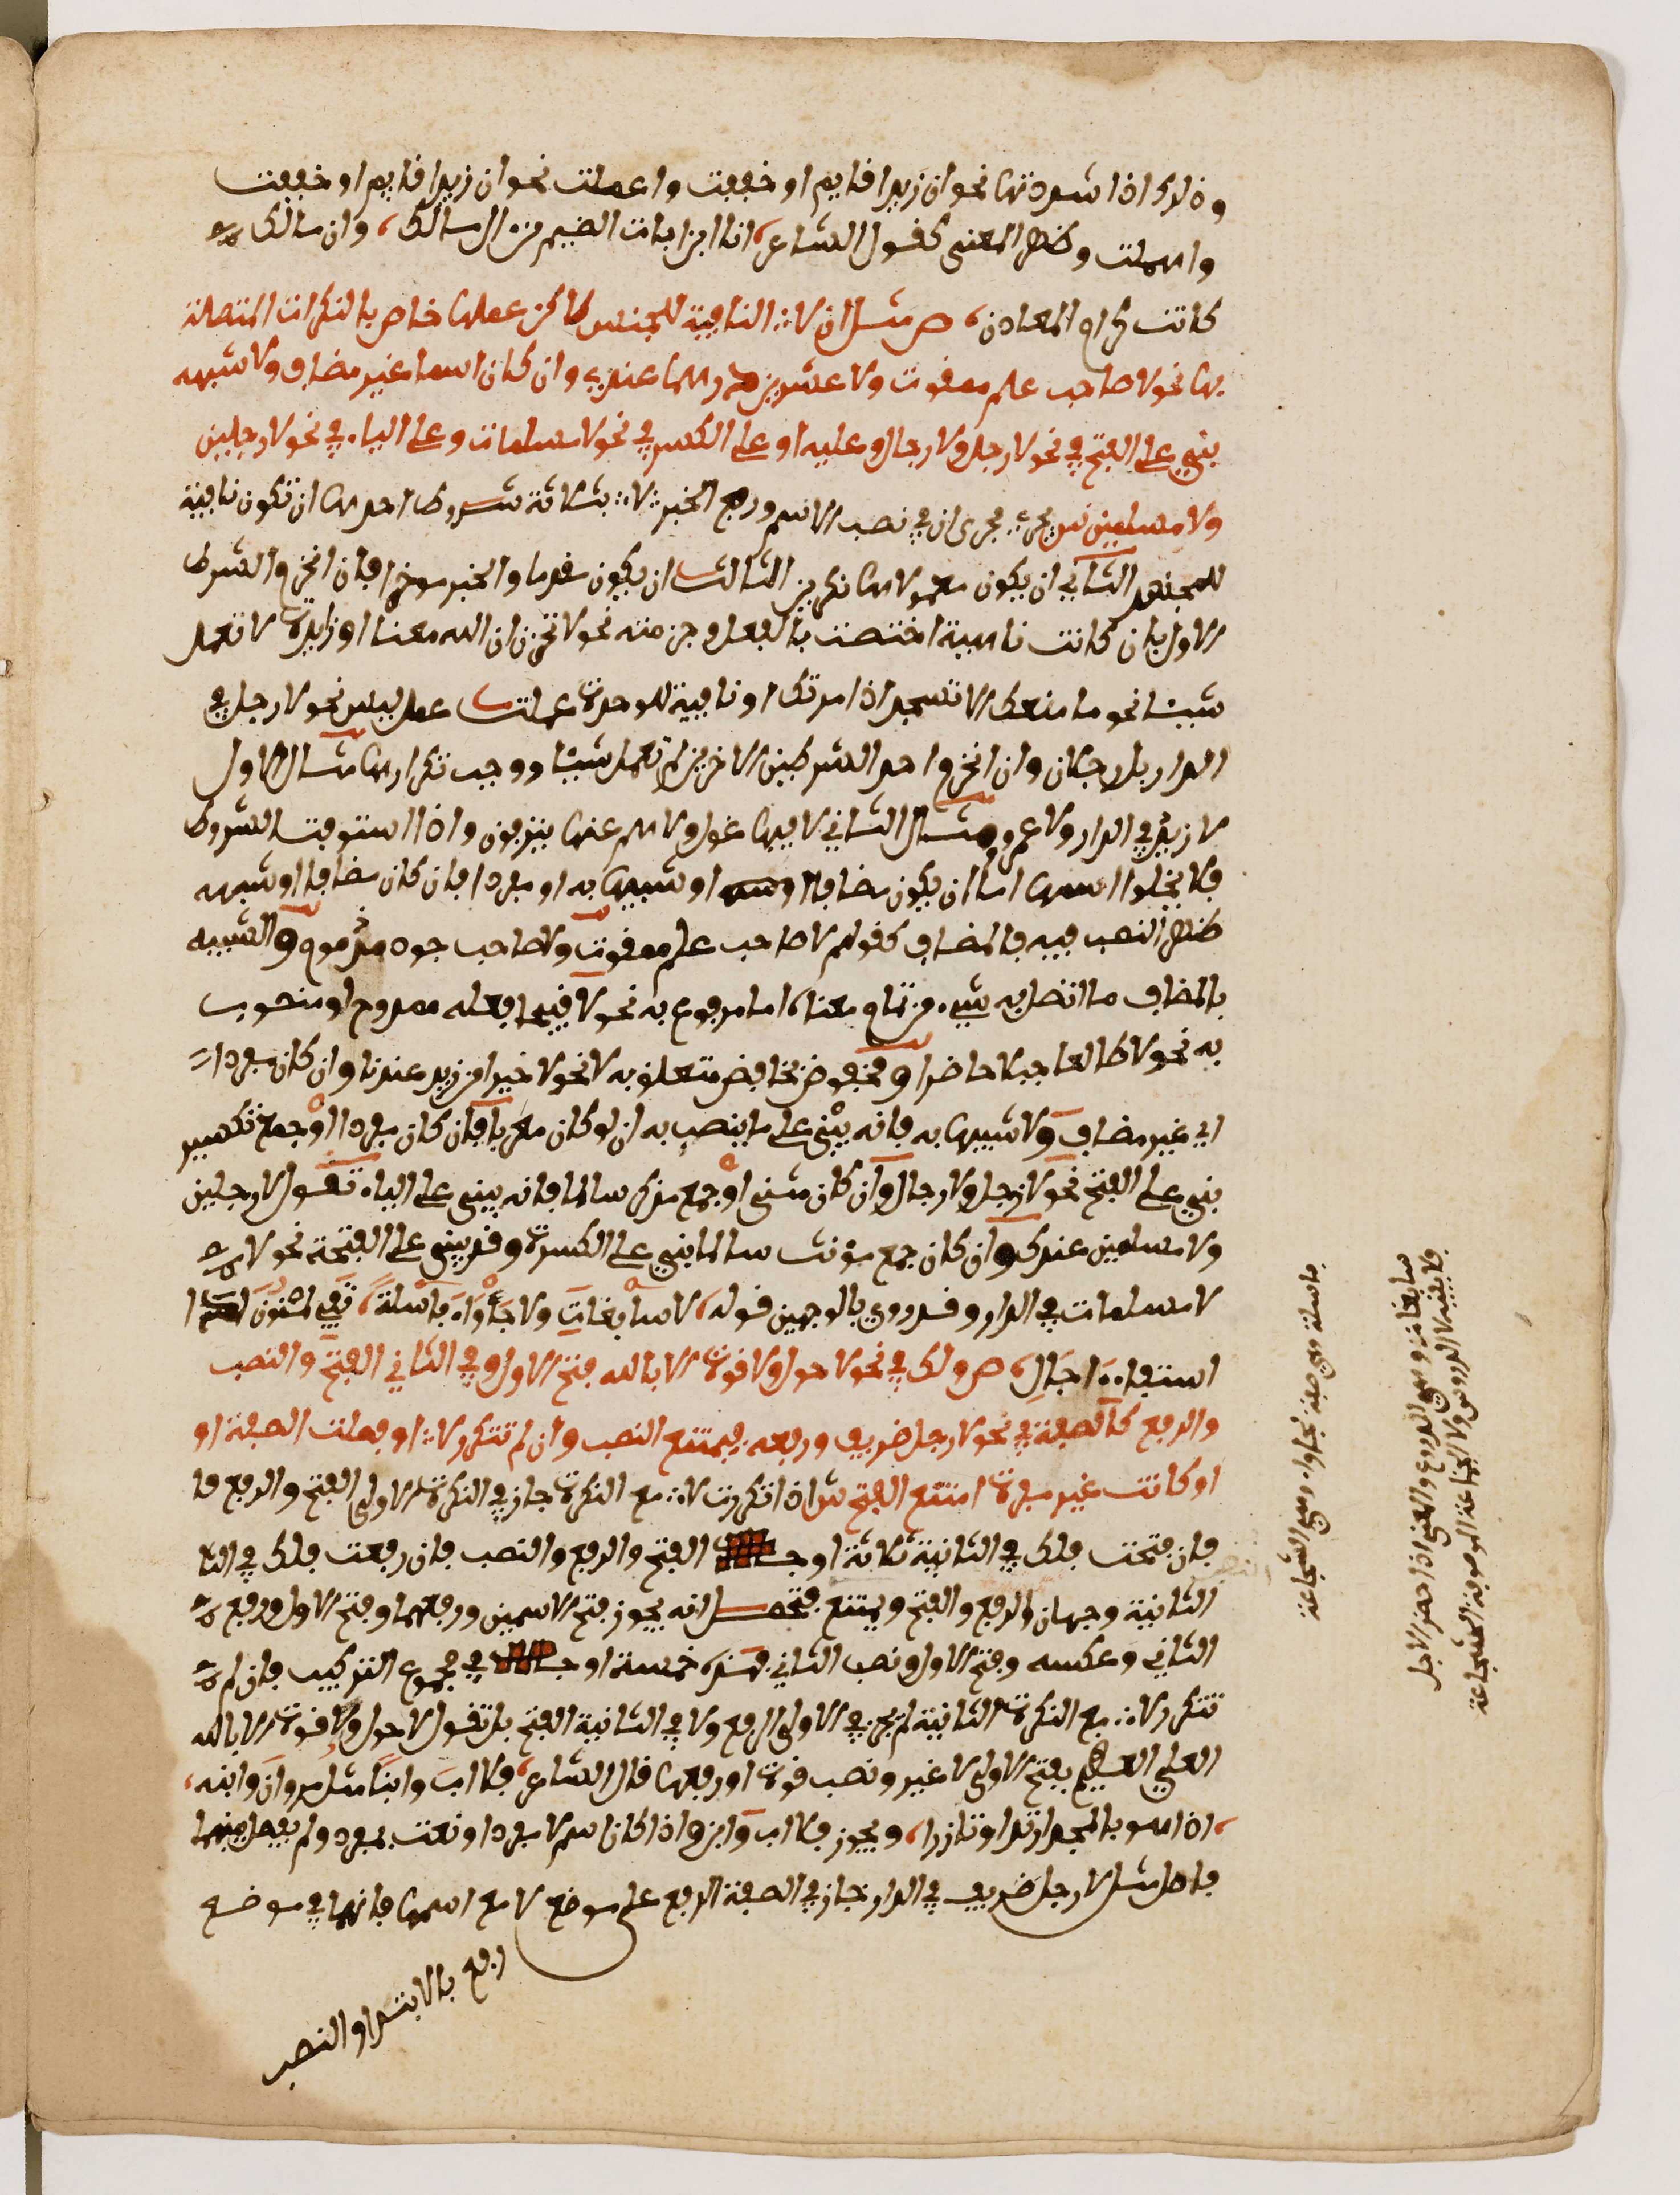 وذلك اذا شددتها نحو ان زيدا قايم او خففت واعملت نحو ان زيدا قايم او خففت
واهملت وظهر المعنى كقول الشاعر، انا ابن اباة الضيم من ال مالك، وان مالك
كانت كرام المعادن، ص مثل ان لا النافية للجنس لاكن عملها خاص بالنكرات المتصلة
بها نحو لا صاحب علم ممقوت ولا عشرين درهما عندي وان كان اسمها غير مضاف ولا شبهه
بني على الفتح في نحو لا رجل ولا رجال وعليه او على الكسر في نحو لا مسلمات وعلى الياء في نحو لا رجلين
ولا مسلمين ش يجري مجرى ان في نصب الاسم ورفع الخبر لا بثلاثة شروط احدها ان تكون نافية
للجنس الثاني ان يكون معمولاها نكرتين الثالث ان يكون مقدما والخبر موخرا فان انخرم الشرط
الاول بان كانت ناهية اختصت بالفعل وجزمته نحو لا تحزن ان الله معنا او زايدة لا تعمل
شيئا نحو ما منعك الا تسجد اذ امرتك او نافية للوحدة عملت عمل ليس نحو لا رجل في
الدار بل رجلان وان انخرم احد الشرطين الاخرين لم تعمل شيئا ووجب تكرارها مثال الاول
لا زيد في الدار ولا عمرو ومثال الثاني لا فيها غول ولا هم عنها ينزفون واذا استوفت الشروط
فلا يخلوا اسمها اما ان يكون مضافا او شبيها به او مفردا فان كان مضافا او شبهه
ظهر النصب فيه فالمضاف كقولهم لا صاحب علم ممقوت ولا صاحب جود مذموم والشبيه
بالمضاف ما اتصل به شيء من تمام معناه اما مرفوع به نحو لا قبيحا فعله ممدوح او منصوب
به نحو لا طالعا جبلا حاضر او مخفوض بخافض متعلق به لا نحو لا خيرا من زيد عندنا وان كان مفردا
اي غير مضاف ولا شبيها به فانه يبنى على ما ينصب به ان لو كان معربا فان كان مفردا او جمع تكسير
بني على الفتح نحو لا رجل ولا رجال وان كان مثنى او جمع مذكر سالما فانه يبنى على الياء تقول لا رجلين
ولا مسلمين عندك وان كان جمع مؤنث سالما بني على الكسرة وقد يبنى على الفتحة نحو
لا مسلمات في الدار وقد روي بالوجهين قوله، لا سابغات ولا جأواء باسلة، تقي المنون لدا
استيفاء اجال، ص ولك في نحو لا حول ولا قوة الا بالله فتح الاول وفي الثاني الفتح والنصب
والرفع كالصفة في نحو لا رجل ظريف ورفعه فيمتنع النصب وان لم تتكرر لا او فصلت الصفة او
او كانت غير مفردة امتنع الفتح ش اذا تكررت لا مع النكرة جاز في النكرة الاولى الفتح والرفع فا
فان فتحت فلك في الثانية ثلاثة اوجه الفتح والرفع والنصب فان رفعت فلك في الثا
الثانية وجهان الرفع والفتح ويمتنع فتحصل انه يجوز فتح الاسمين ورفعهما وفتح الاول ورفع
الثاني وعكسه وفتح الاول ونصب الثاني فهذه خمسة اوجه في مجموع التركيب فان لم
تتكرر لا مع النكرة الثانية لم يجز في الاولى الرفع ولا في الثانية الفتح بل تقول لا حول ولا قوة الا بالله
العلي العظيم بفتح الاولى لا غير ونصب قوة او رفعها قال الشاعر، فلا اب وابنا مثل مروان وابنه،
، اذا هو بالمجد ارتدا وتازرا، ويجوز فلا اب وابن واذا كان اسم لا مفردا ونعت بمفرد ولم يفصل بينهما
فاصل مثل لا رجل ظريف في الدار جاز في الصفة الرفع على موضع لا مع اسمها فانهما في موضع
رفع بالابتدا والنصب
باسلة وهي صفة لجاواء وهي الشجاعة
سابغات وهي الدروع والمعنى اذا حضر الاجل
فلا يقيه لا الدروع ولا الجماعة الموصوفة بالشجاعة